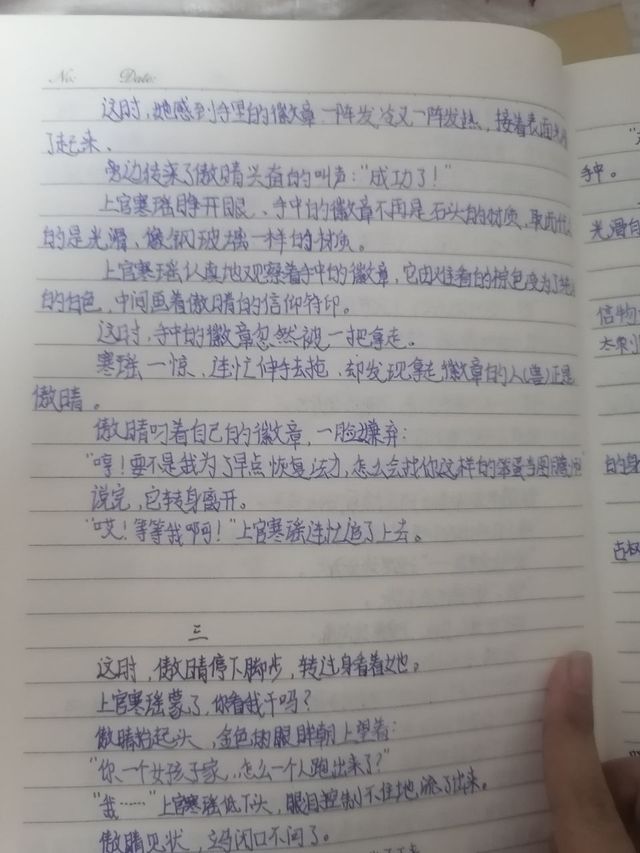 No:    Date:
这时,她感到手里的徽文章一阵发冷又一阵发热,接着表面
了起来、
旁边传来了傲晴兴奋的叫声:“成功了!”
上官寒瑶睁开眼、手中的徽文章不再是石头的材质,取而代
的是光滑、像钢玻璃一样的材质。
上官寒瑶认真地观察着手中的徽文章,它由难看的棕色变为了纯
的白色,中间画着傲晴的信仰符印。
这时,手中的徽文章忽然被一把拿走。
寒瑶一惊、连忙伸手去抢、却发现拿走徽文章的人(兽)正是
傲晴。
傲晴叼着自己的徽文章,一脸嫌弃:
“哼!要不是我为了早点恢复法力,怎么会找你这样的笨蛋当图腾
说完,它转身离开。
“哎!等等我啊!”上官寒瑶连忙追了上去。
三
这时,傲晴停下脚步,转过身看着她。
上官寒瑶蒙了,你看我干吗?
傲晴抬起头,金色的眼眸朝上望着:
“你一个女孩子家,怎么一个人跑出来了?”
“我……”上官寒瑶低下头,眼泪控制不住地流了出来。
傲晴见状,立马闭口不问了。
手中。
光滑自
信物
的身
古权